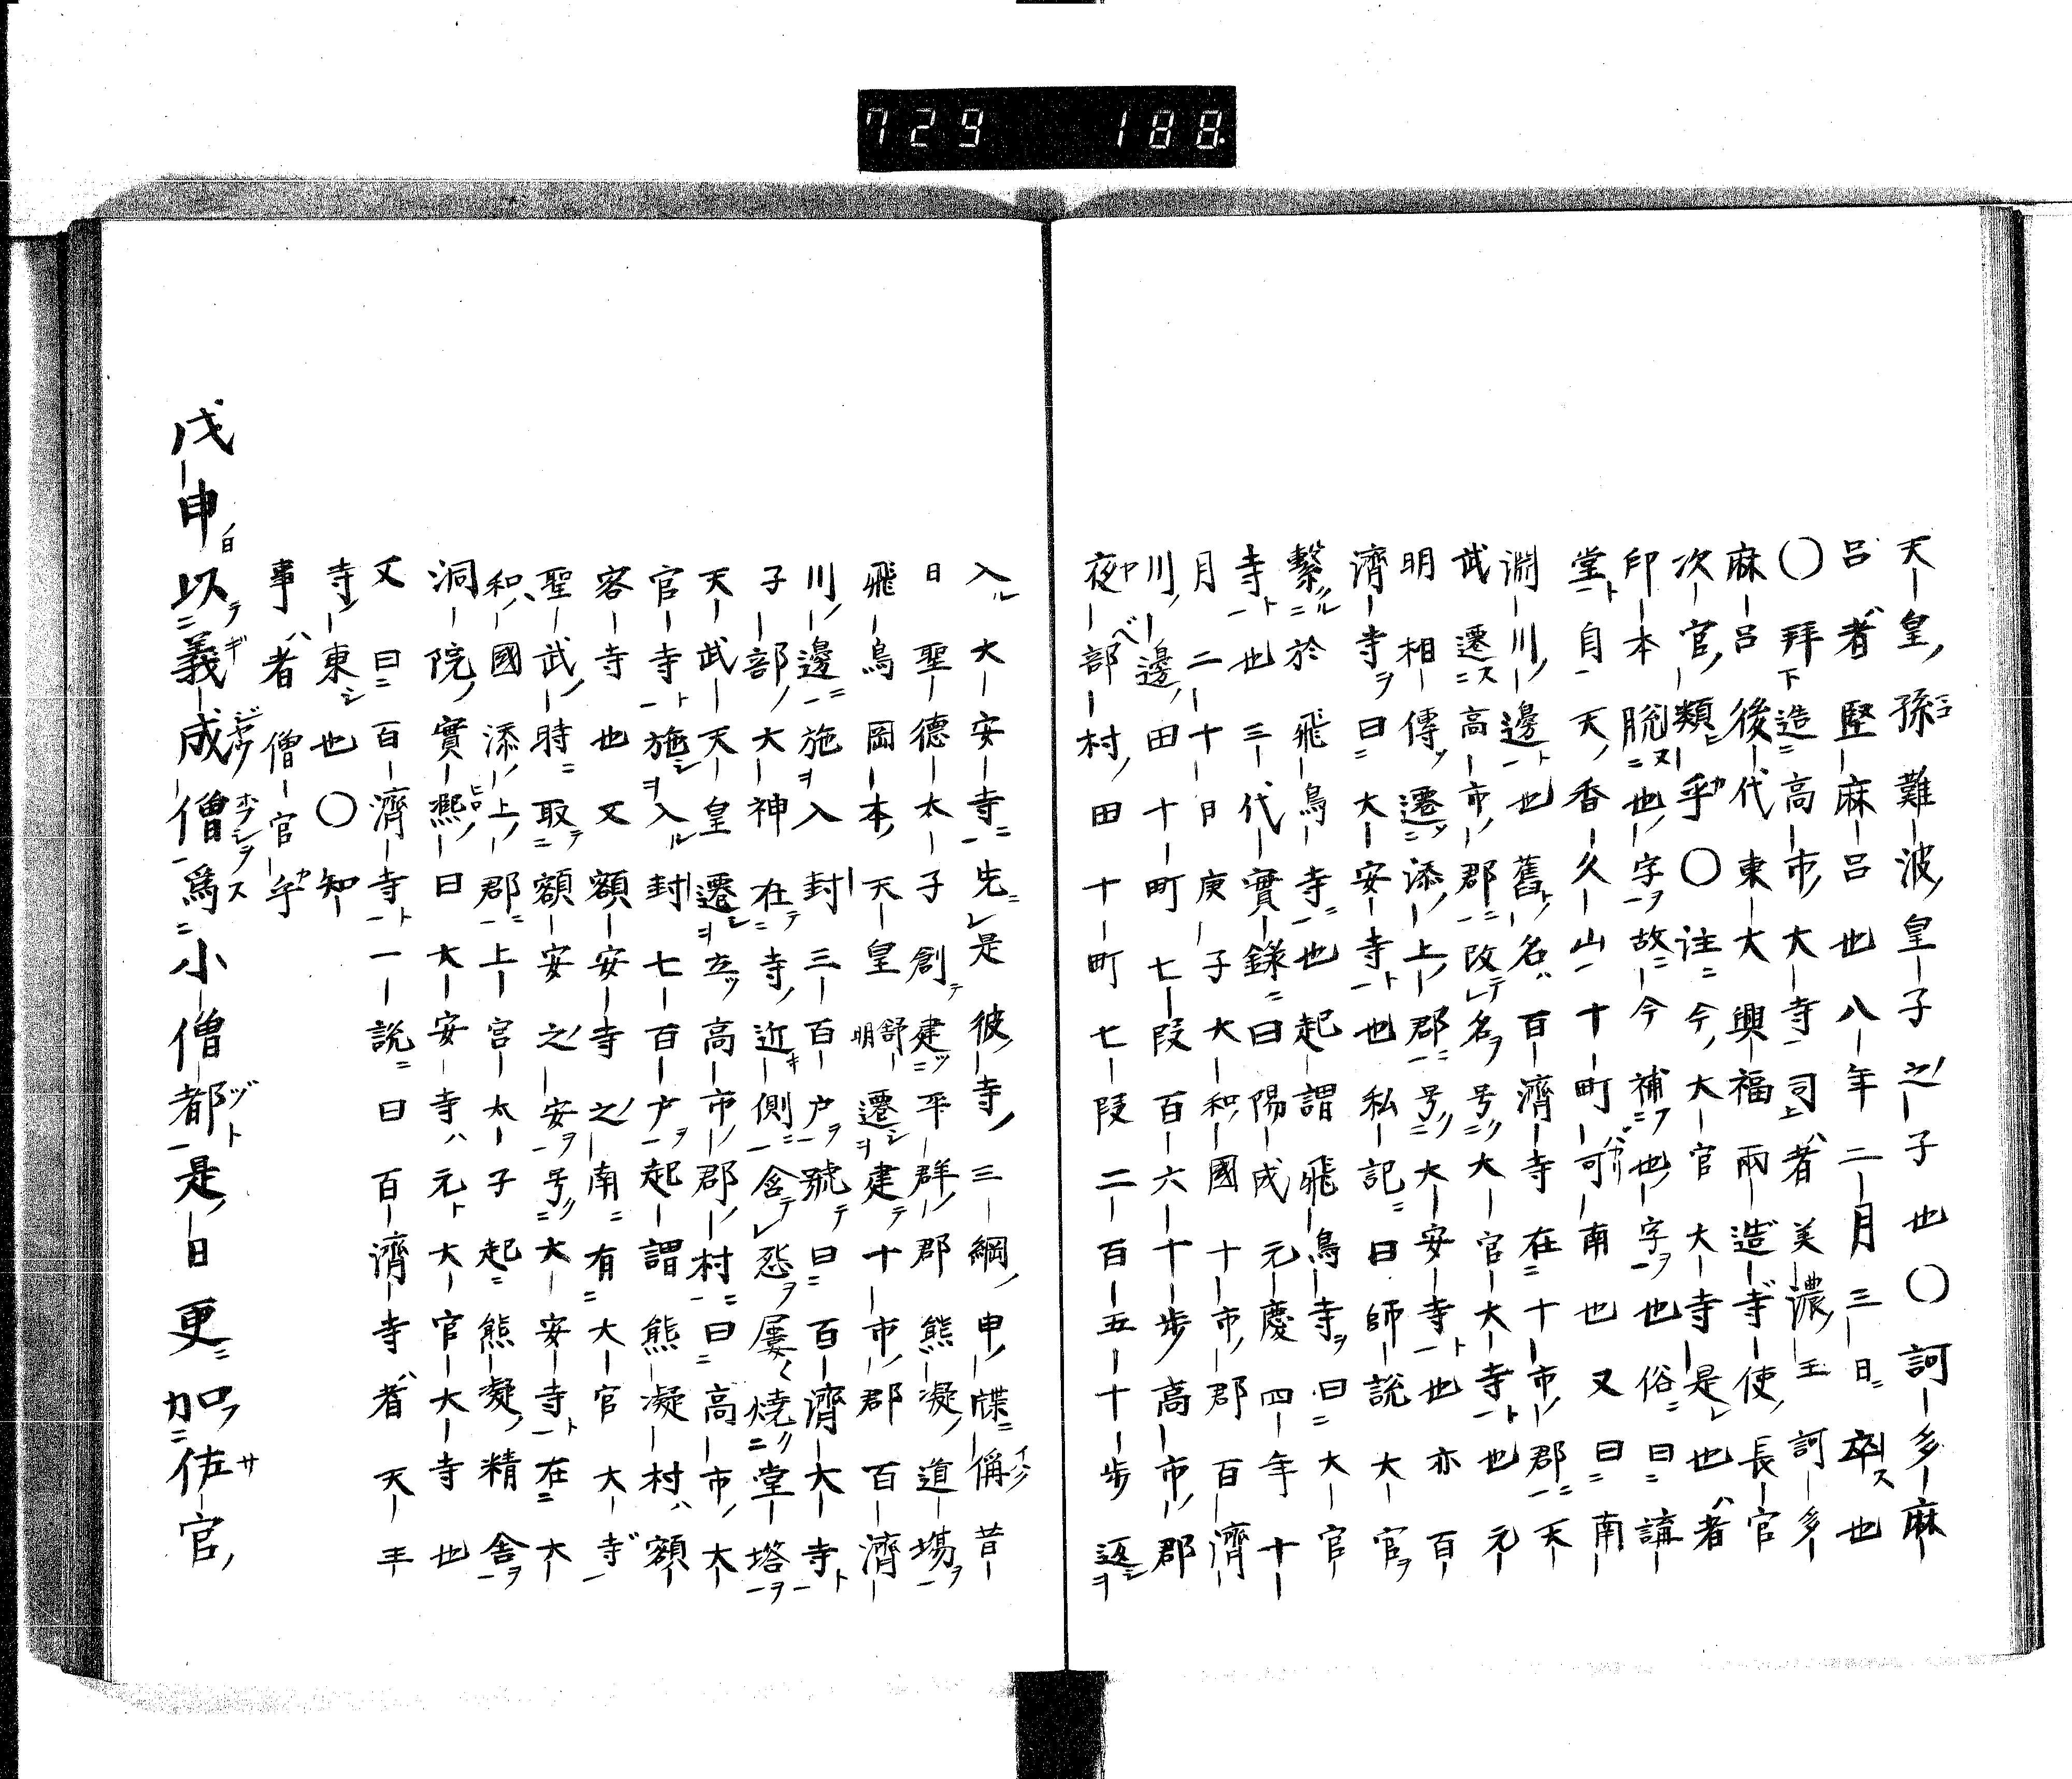 729 188
天皇ノ孫難波ノ皇子之子也〇訶多麻
呂者堅麻呂也八年二月三日卒也
〇拜造高市大寺司者美濃王訶多
麻呂後代東大興福兩造寺使長官
次官ノ類乎〇註今大官大寺是也者
印本脱也字故今補也字也俗曰講
堂自天香久山十町可南也又曰南
淵川邊也舊名百濟寺在十市郡天
武遷高市郡改名号大官大寺也元
明相傳遷添上郡号大安寺也亦百
濟寺曰大安寺也私記曰師説大官
繫於飛鳥寺也起謂飛鳥寺曰大官
寺也三代實録曰陽成元慶四年十
月二十日庚子大和國十市郡百濟
川邊田十町七段百六十歩高市郡
夜部村田十町七段二百五十歩返
入大安寺先是彼寺三綱申牒偁昔
日聖德太子創建平群郡熊凝道場
飛鳥岡本天皇舒明遷建十市郡百濟
川邊施入封三百戸號曰百濟大寺
子部大神在寺近側含怒屢燒堂塔
天武天皇遷立高市郡村曰高市大
官寺施入封七百戸起謂熊凝村ハ額
容寺也又額安寺之南有大官大寺
聖武時取額安之安号大安寺在大
和國添上郡上宮太子起熊凝精舎
洞院實熙曰大安寺ハ元大官大寺也
又曰百濟寺一説曰百濟寺者天平
寺東也〇知
事者僧官乎
戊申以義成僧爲小僧都是日更加佐官